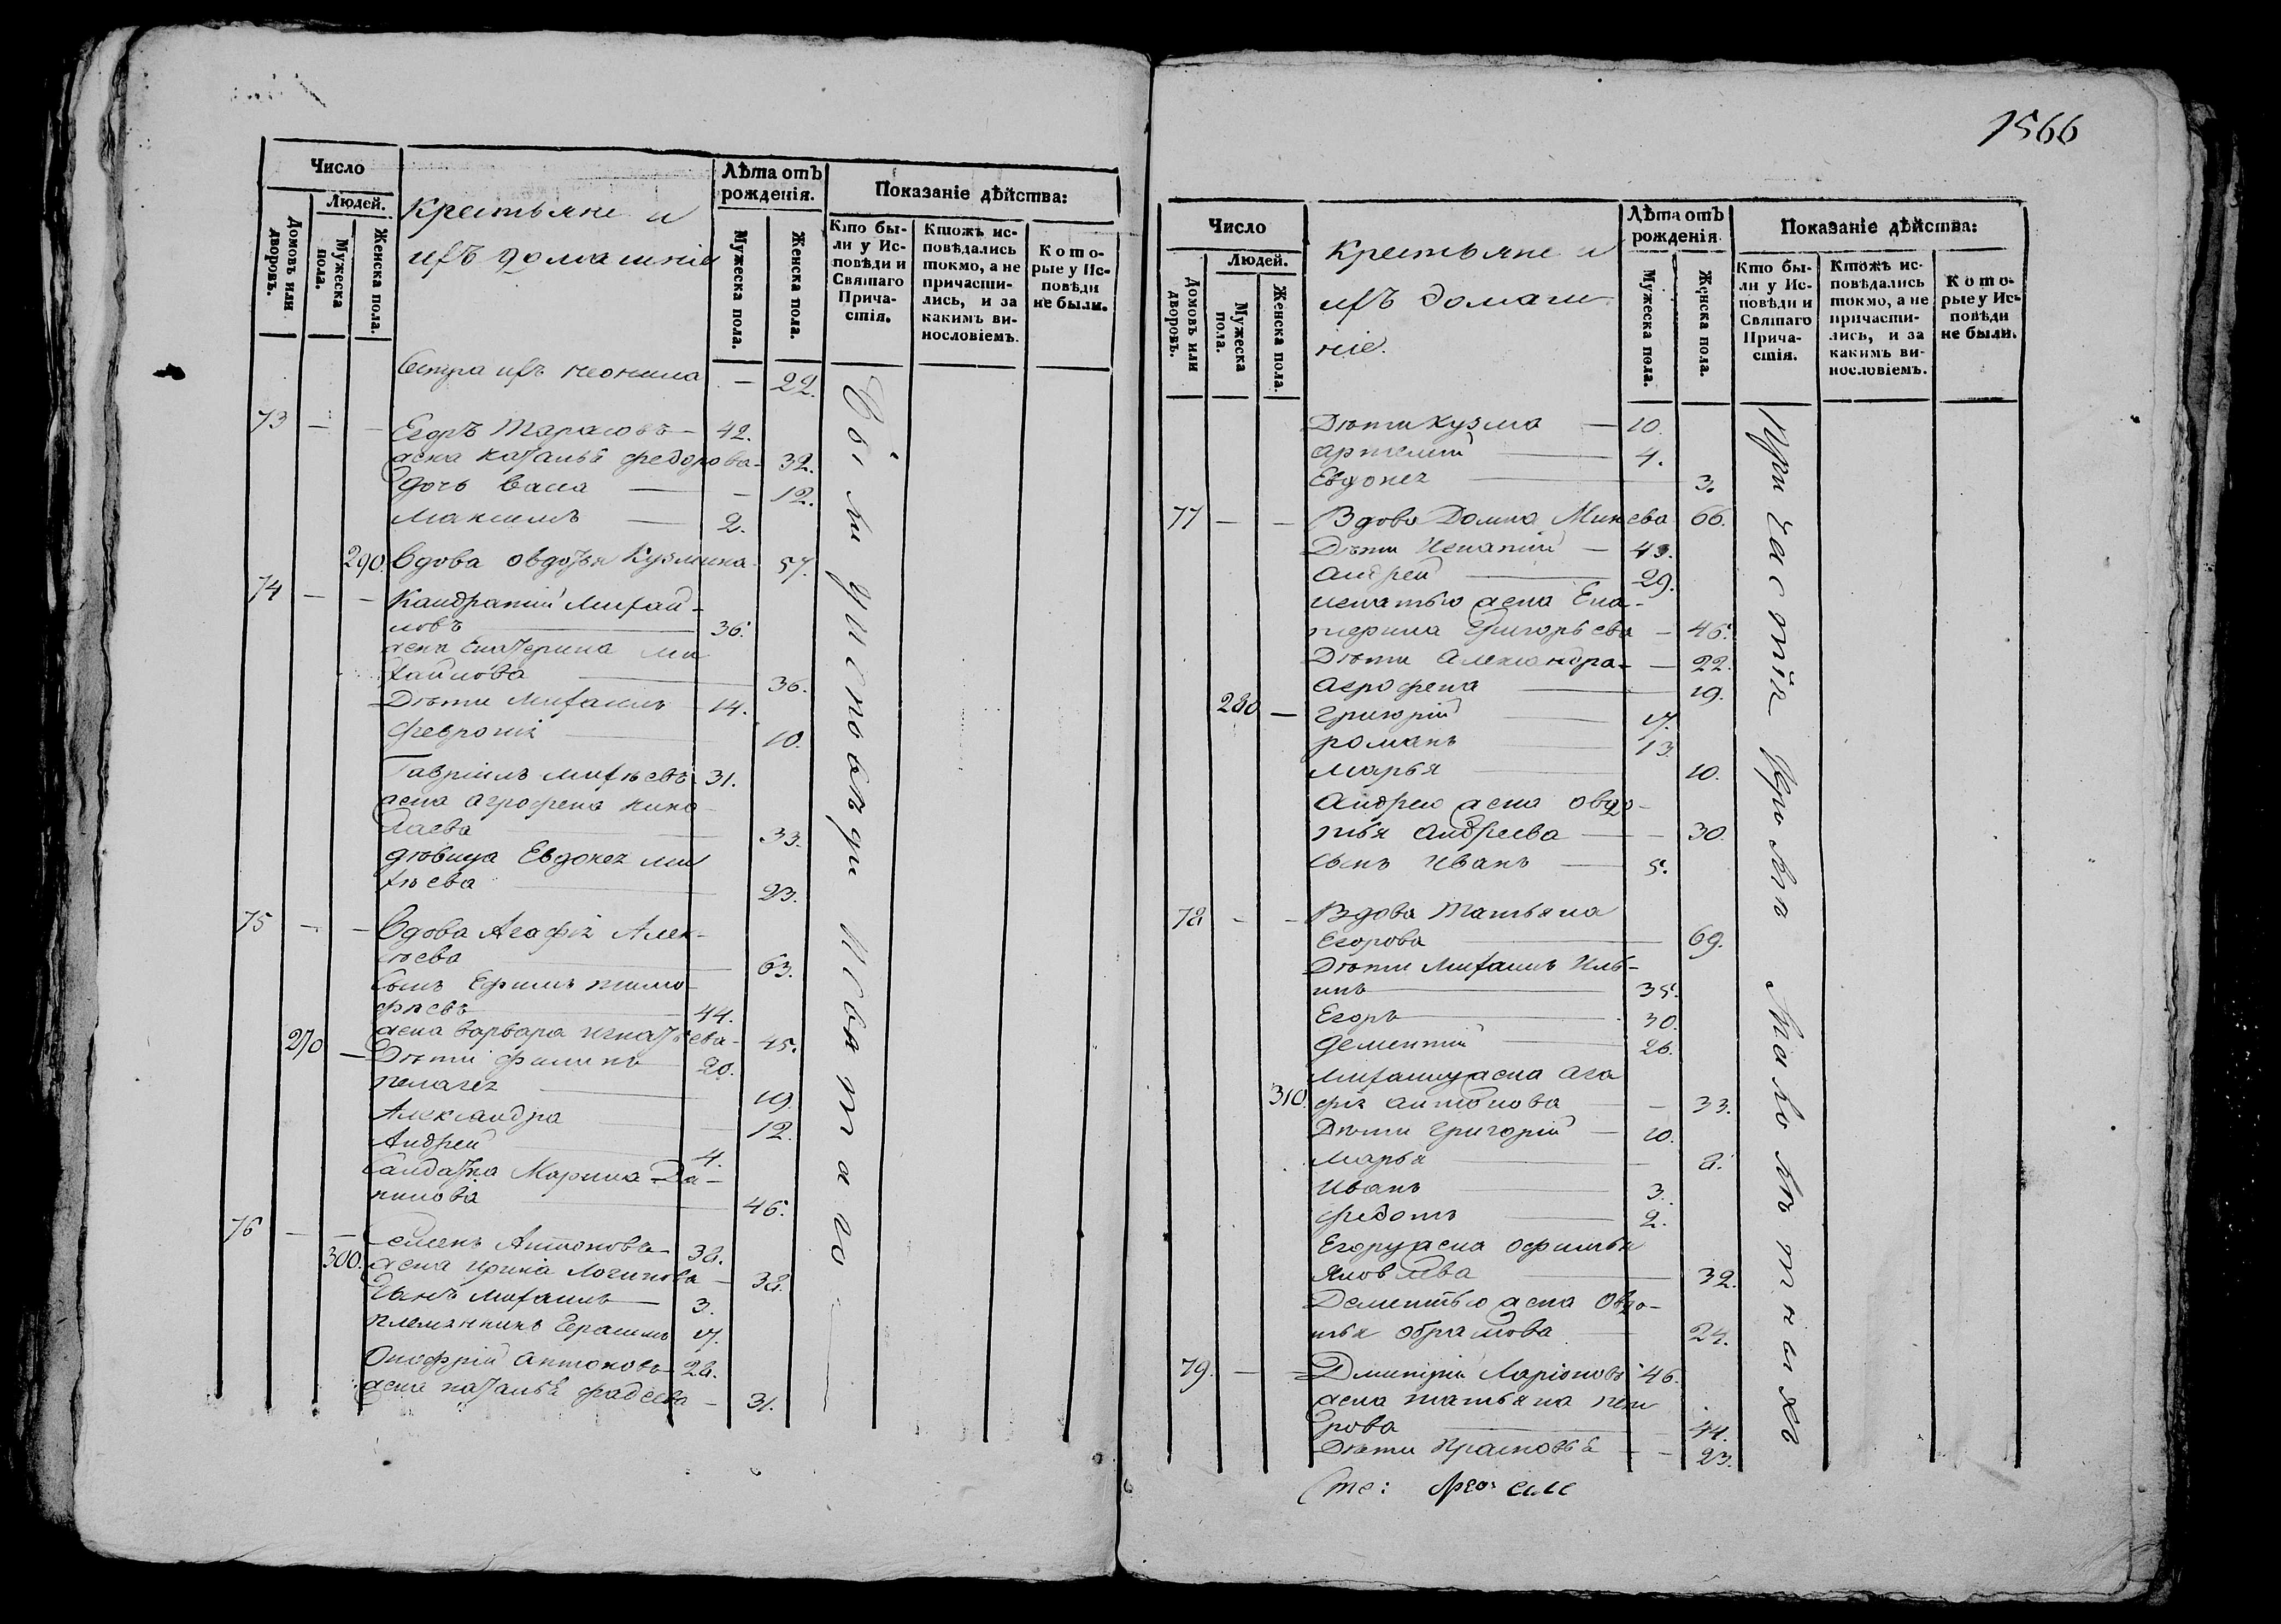 Число
Людей.
Домовъ или дворовъ.
Мужеска пола.
Женска пола.
Крестьяне и
ихъ домашніи
Лѣта отъ рожденія.
Мужеска пола.
Женска пола.
Показаніе дѣйства:
Кто бы-
ли у Ис-
повѣди и
Святаго
Прича-
стія.
Ктожъ ис-
повѣдались
токмо, а не
причасти-
лись, и за
какимъ ви-
нословіемъ.
Кото-
рые у Ис-
повѣди
не были.
Сестра ихъ неонила — 22.
73 — — Егоръ Тарасовъ — 42.
жена наталья федорова — 32.
дочь васса — — 12.
максимъ — 2.
290. Вдова овдотья Кузмина 57.
74 — — Кандратий Михай-
ловъ — 36.
жена Екатерина ми
хайлова — 36.
Дѣти михаилъ — 14.
феврония — 10.
Гавріилъ михѣевъ 31.
жена агрофена нико-
лаева — 33.
девица Евдокея ми
хѣева — 23.
75 — — Вдова Агафія Алек-
сѣева — 63.
Сынъ Ефимъ тимо-
фѣевъ — 44.
жена варвара игнатьева — 45.
270 — Дѣти филипъ 20.
пелагея — 19.
Александра — 12.
Андрей — 4.
Салдатка Марина Да-
нилова — 46.
76 — — Семенъ Антоновъ — 38.
300. жена ирина логинова — 38.
Сынъ михаилъ — 3.
племянникъ Герасимъ 17.
Онофрій антоновъ — 28.
жена наталья фадеева — 31.
Были у исповеди и святаго
1566
Число
Людей.
Домовъ или дворовъ.
Мужеска пола.
Женска пола.
крестьяне и
ихъ домаш
ніе.
Лѣта отъ рожденія
Мужеска пола.
Женска пола.
Показаніе дѣйства:
Кто бы-
ли у Ис-
повѣди и
Святаго
Прича-
стія.
Ктожъ ис-
повѣдались
токмо, а не
причасти-
лись, и за
какимъ ви-
нословіемъ.
Кото-
рые у Ис-
повѣди
не были.
Дѣти кузма — 10.
артемий — 4.
Евдокея — 3.
77 — — Вдова Домна Минева 66.
Дѣти Игнатий — 43.
андрей — 29.
игнатью жена Ека-
терина Григорьева — 46.
Дѣти Александра — 22.
агрофена — 19.
280 — григорій — 17.
романъ — 13
марья — 10.
андрею жена овдо-
тья андреева — 30.
сынъ иванъ — 5.
78 — — Вдова Татьяна
Егорова — 69.
Дѣти михаилъ иль-
инъ — 35.
Егоръ — 30.
Дементий — 26.
михаилу жена ага
310. фія антонова — 33.
Дѣти григорій — 10.
марья — 8.
иванъ — 3.
федотъ — 2.
Егору жена офимья
Яковлева — 32.
Дементью жена овдо-
тья обрамова — 24.
79. — — Дмитрій Ларіоновъ 46.
жена татьяна пет
рова — 44.
Дѣти прасковья — 23.